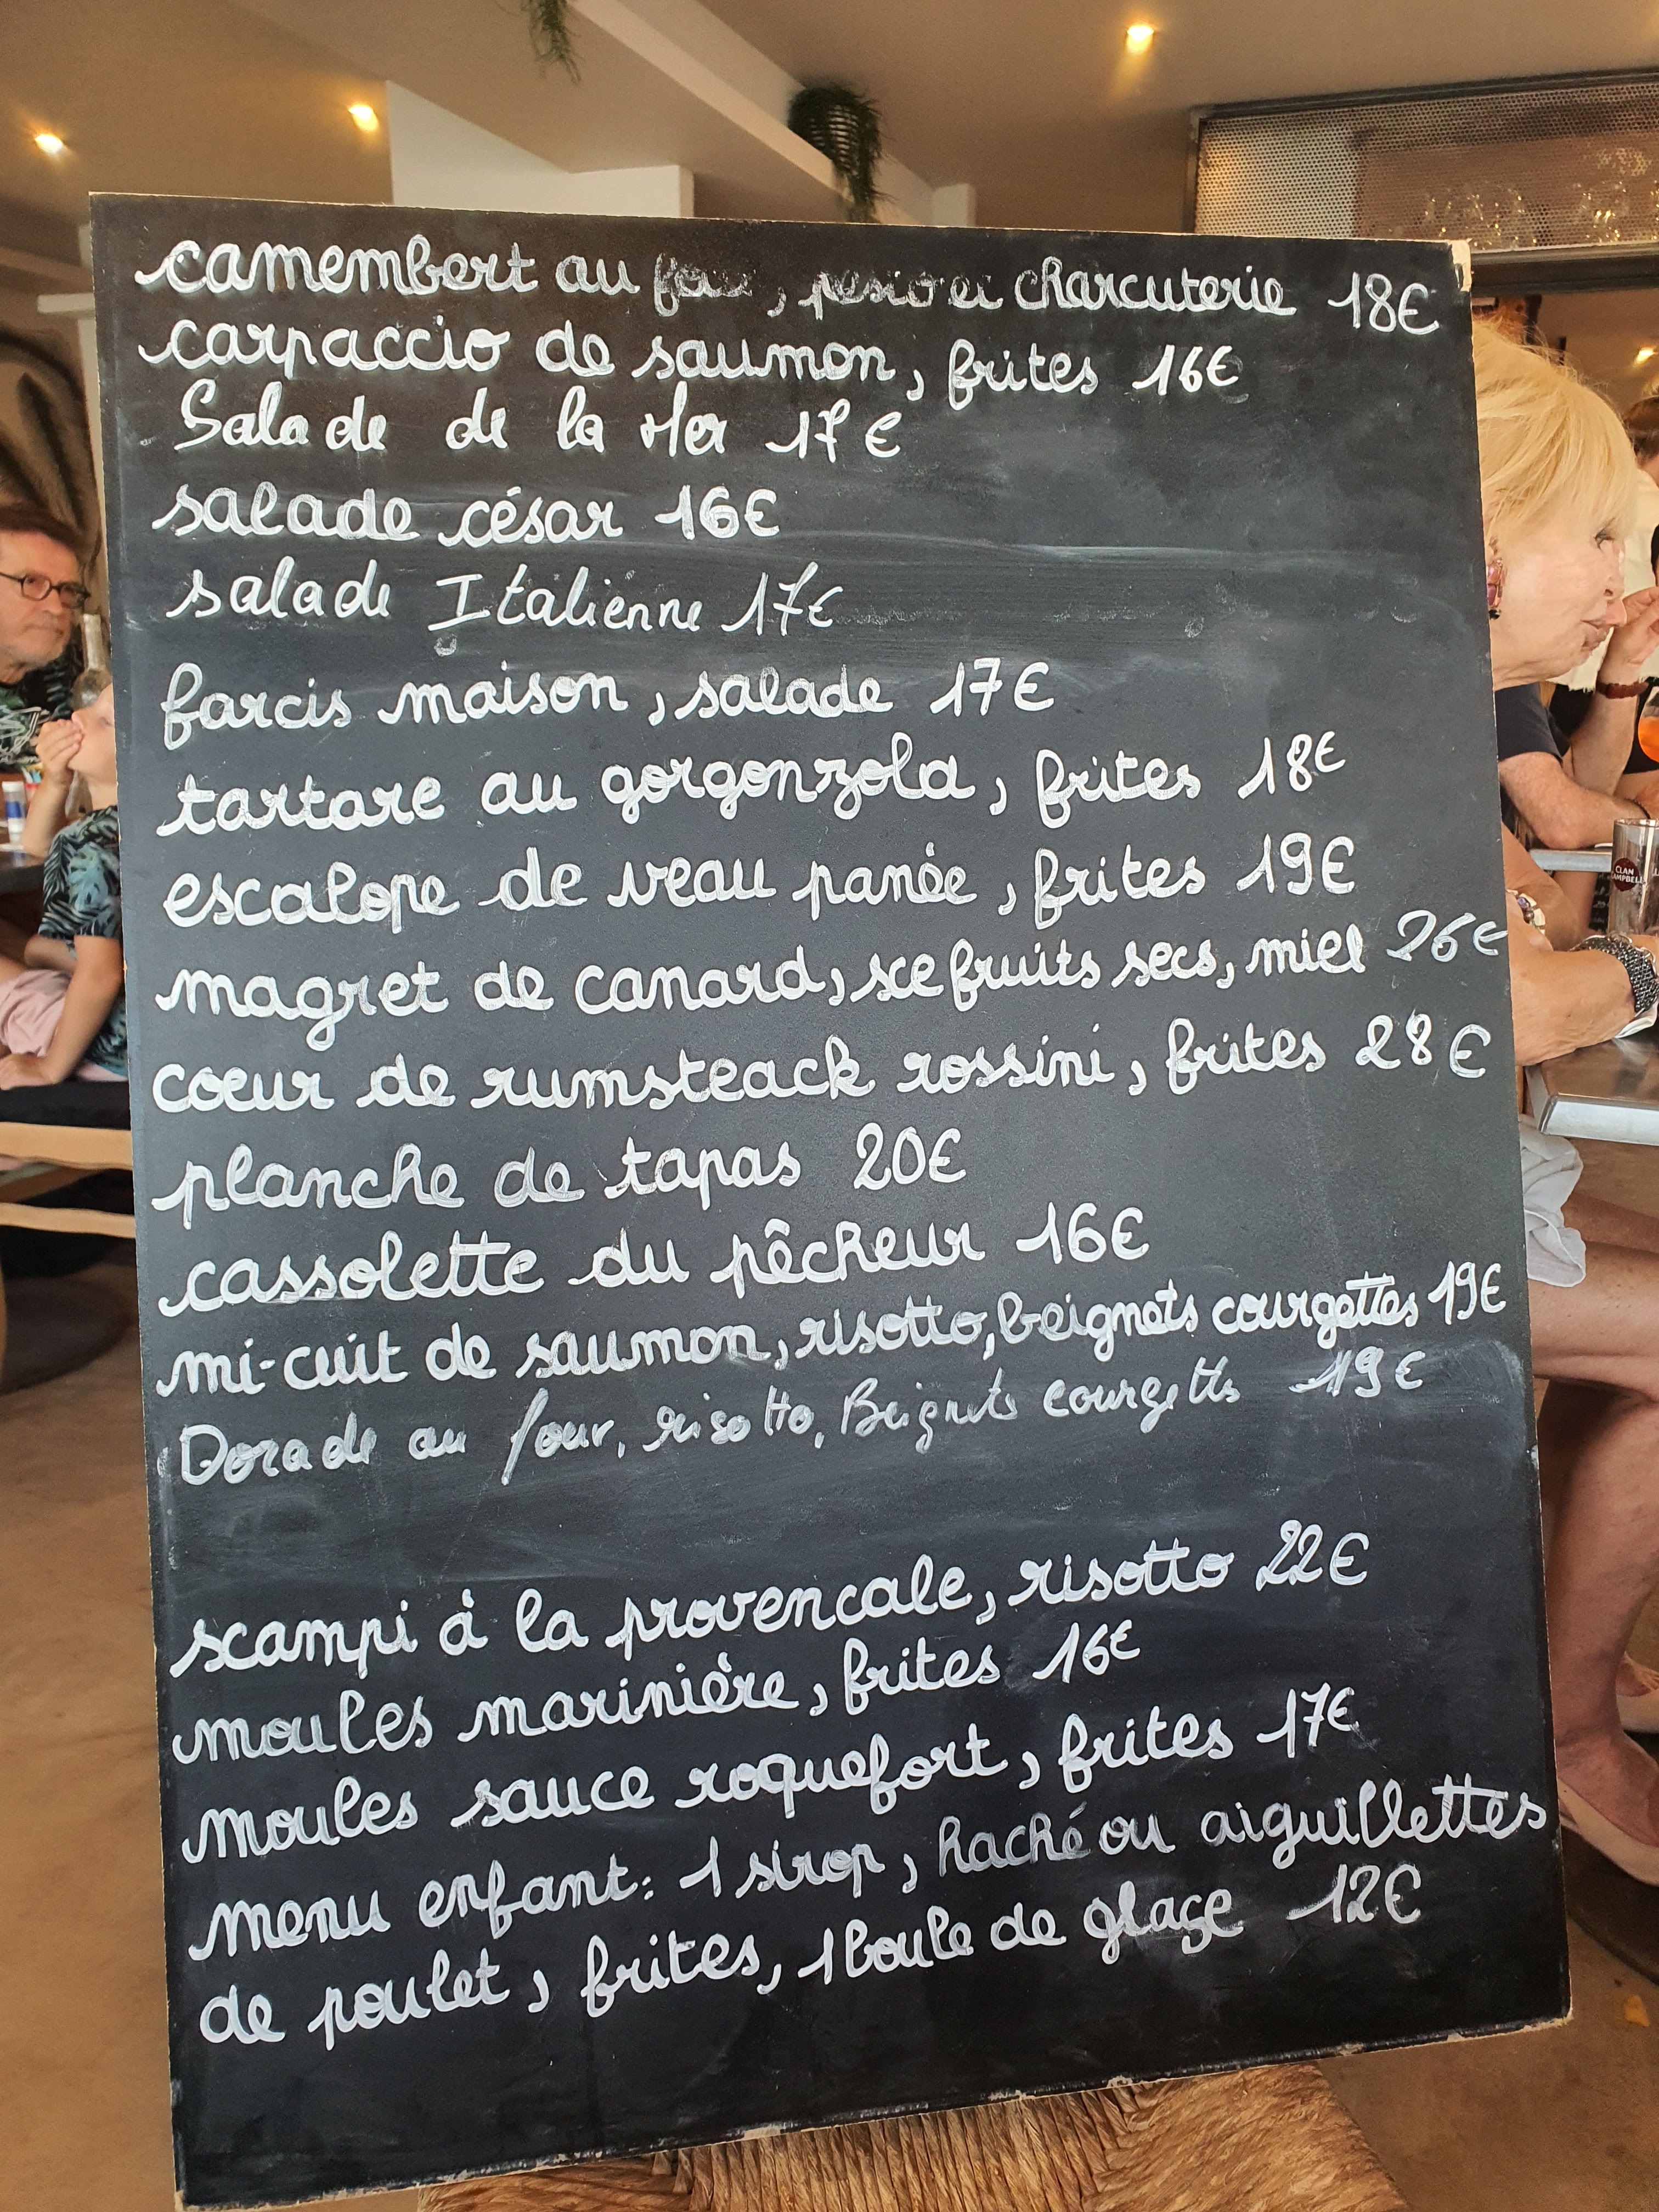 camembert au four, pesto et charcuterie 18€
carpaccio de saumon, frites 16€
Salade de la Mer 17€
salade césar 16€
salade Italienne 17€
farcis maison, salade 17€
tartare au gorgonzola, frites 18€
escalope de veau panée, frites 19€
magret de canard, sce fruits secs, miel 26€
coeur de rumsteack rossini, frites 28€
planche de tapas 20€
cassolette du pêcheur 16€
mi-cuit de saumon, risotto, beignets courgettes 19€
Dorade au four, risotto, Beignets courgettes 19€
scampi à la provencale, risotto 22€
moules marinière, frites 16€
moules sauce roquefort, frites 17€
menu enfant: 1 sirop, haché ou aiguillettes
de poulet, frites, 1 boule de glace 12€
CLAN
CAMPBELL